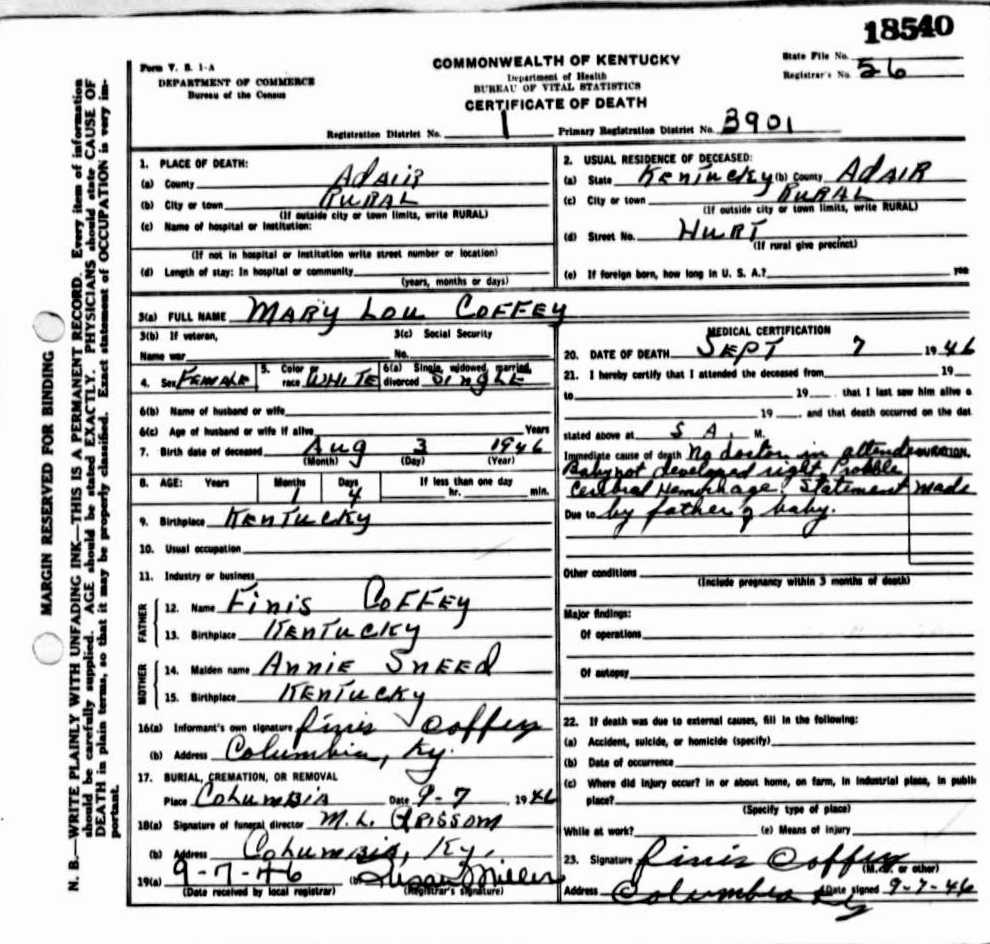 18540
Form V. S. 1-A
DEPARTMENT OF COMMERCE
Bureau of the Census
COMMONWEALTH OF KENTUCKY
Department of Health
BUREAU OF VITAL STATISTICS
CERTIFICATE OF DEATH
State File No.
Registrar's No. 56
Registration District No. 1 Primary Registration District No. 3901
MARGIN RESERVED FOR BINDING
N. B.—WRITE PLAINLY WITH UNFADING INK—THIS IS A PERMANENT RECORD. Every item of information
should be carefully supplied. AGE should be stated EXACTLY. PHYSICIANS should state CAUSE OF
DEATH in plain terms, so that it may be properly classified. Exact statement of OCCUPATION is very im-
portant.
1. PLACE OF DEATH:
(a) County ADAIR
(b) City or town RURAL
(If outside city or town limits, write RURAL)
(c) Name of hospital or institution:
(If not in hospital or institution write street number or location)
(d) Length of stay: In hospital or community
(years, months or days)
2. USUAL RESIDENCE OF DECEASED:
(a) State KENTUCKY (b) County ADAIR
(c) City or town RURAL
(If outside city or town limits, write RURAL)
(d) Street No. HURT
(If rural give precinct)
(e) If foreign born, how long in U. S. A.? yea
3(a) FULL NAME MARY LOU COFFEY
3(b) If veteran, 3(c) Social Security
Name war No.
4. Sex FEMALE 5. Color or race WHITE 6(a) Single, widowed, married, divorced SINGLE
6(b) Name of husband or wife
6(c) Age of husband or wife if alive Years
7. Birth date of deceased AUG 3 1946
(Month) (Day) (Year)
8. AGE: Years Months Days If less than one day
1 4 hr. min.
9. Birthplace KENTUCKY
10. Usual occupation
11. Industry or business
FATHER
12. Name FINIS COFFEY
13. Birthplace KENTUCKY
MOTHER
14. Maiden name ANNIE SNEED
15. Birthplace KENTUCKY
16(a) Informant's own signature Finis Coffey
(b) Address Columbia, Ky.
17. BURIAL, CREMATION, OR REMOVAL
Place COLUMBIA Date 9-7 1946
18(a) Signature of funeral director M. L. GRISSOM
(b) Address COLUMBIA, KY.
19(a) 9-7-46 (b) Susan Miller
(Date received by local registrar) (Registrar's signature)
MEDICAL CERTIFICATION
20. DATE OF DEATH SEPT 7 1946
21. I hereby certify that I attended the deceased from 19
to 19 , that I last saw him alive o
19 , and that death occurred on the dat
stated above at 5 A. M.
Immediate cause of death No doctor in attend DURATION
Baby not developed right. Probble
Cerebral Hemorhage. Statement made
Due to by father of baby.
Other conditions
(Include pregnancy within 3 months of death)
Major findings:
Of operations
Of autopsy
22. If death was due to external causes, fill in the following:
(a) Accident, suicide, or homicide (specify)
(b) Date of occurrence
(c) Where did injury occur? in or about home, on farm, in industrial place, in public
place?
(Specify type of place)
While at work? (e) Means of injury
23. Signature Finis Coffey
(M.D. or other)
Address Columbia Ky Date signed 9-7-46